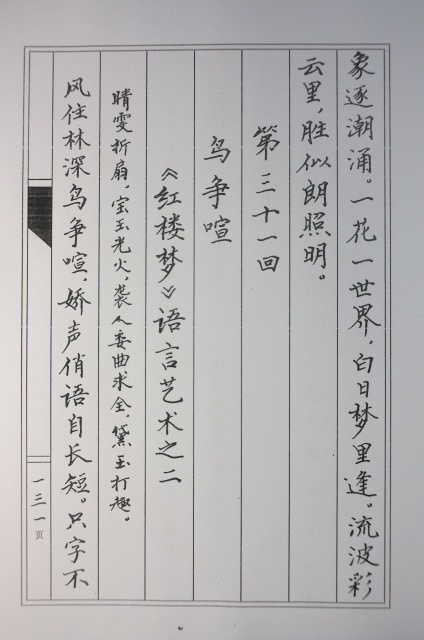 象逐潮涌。一花一世界，白日梦里逢。流波彩
云里，胜似朗照明。
第三十一回
鸟争喧
《红楼梦》语言艺术之二
晴雯折扇，宝玉光火。袭人委曲求全，黛玉打趣。
风住林深鸟争喧，娇声俏语自长短。只字不
一三一页